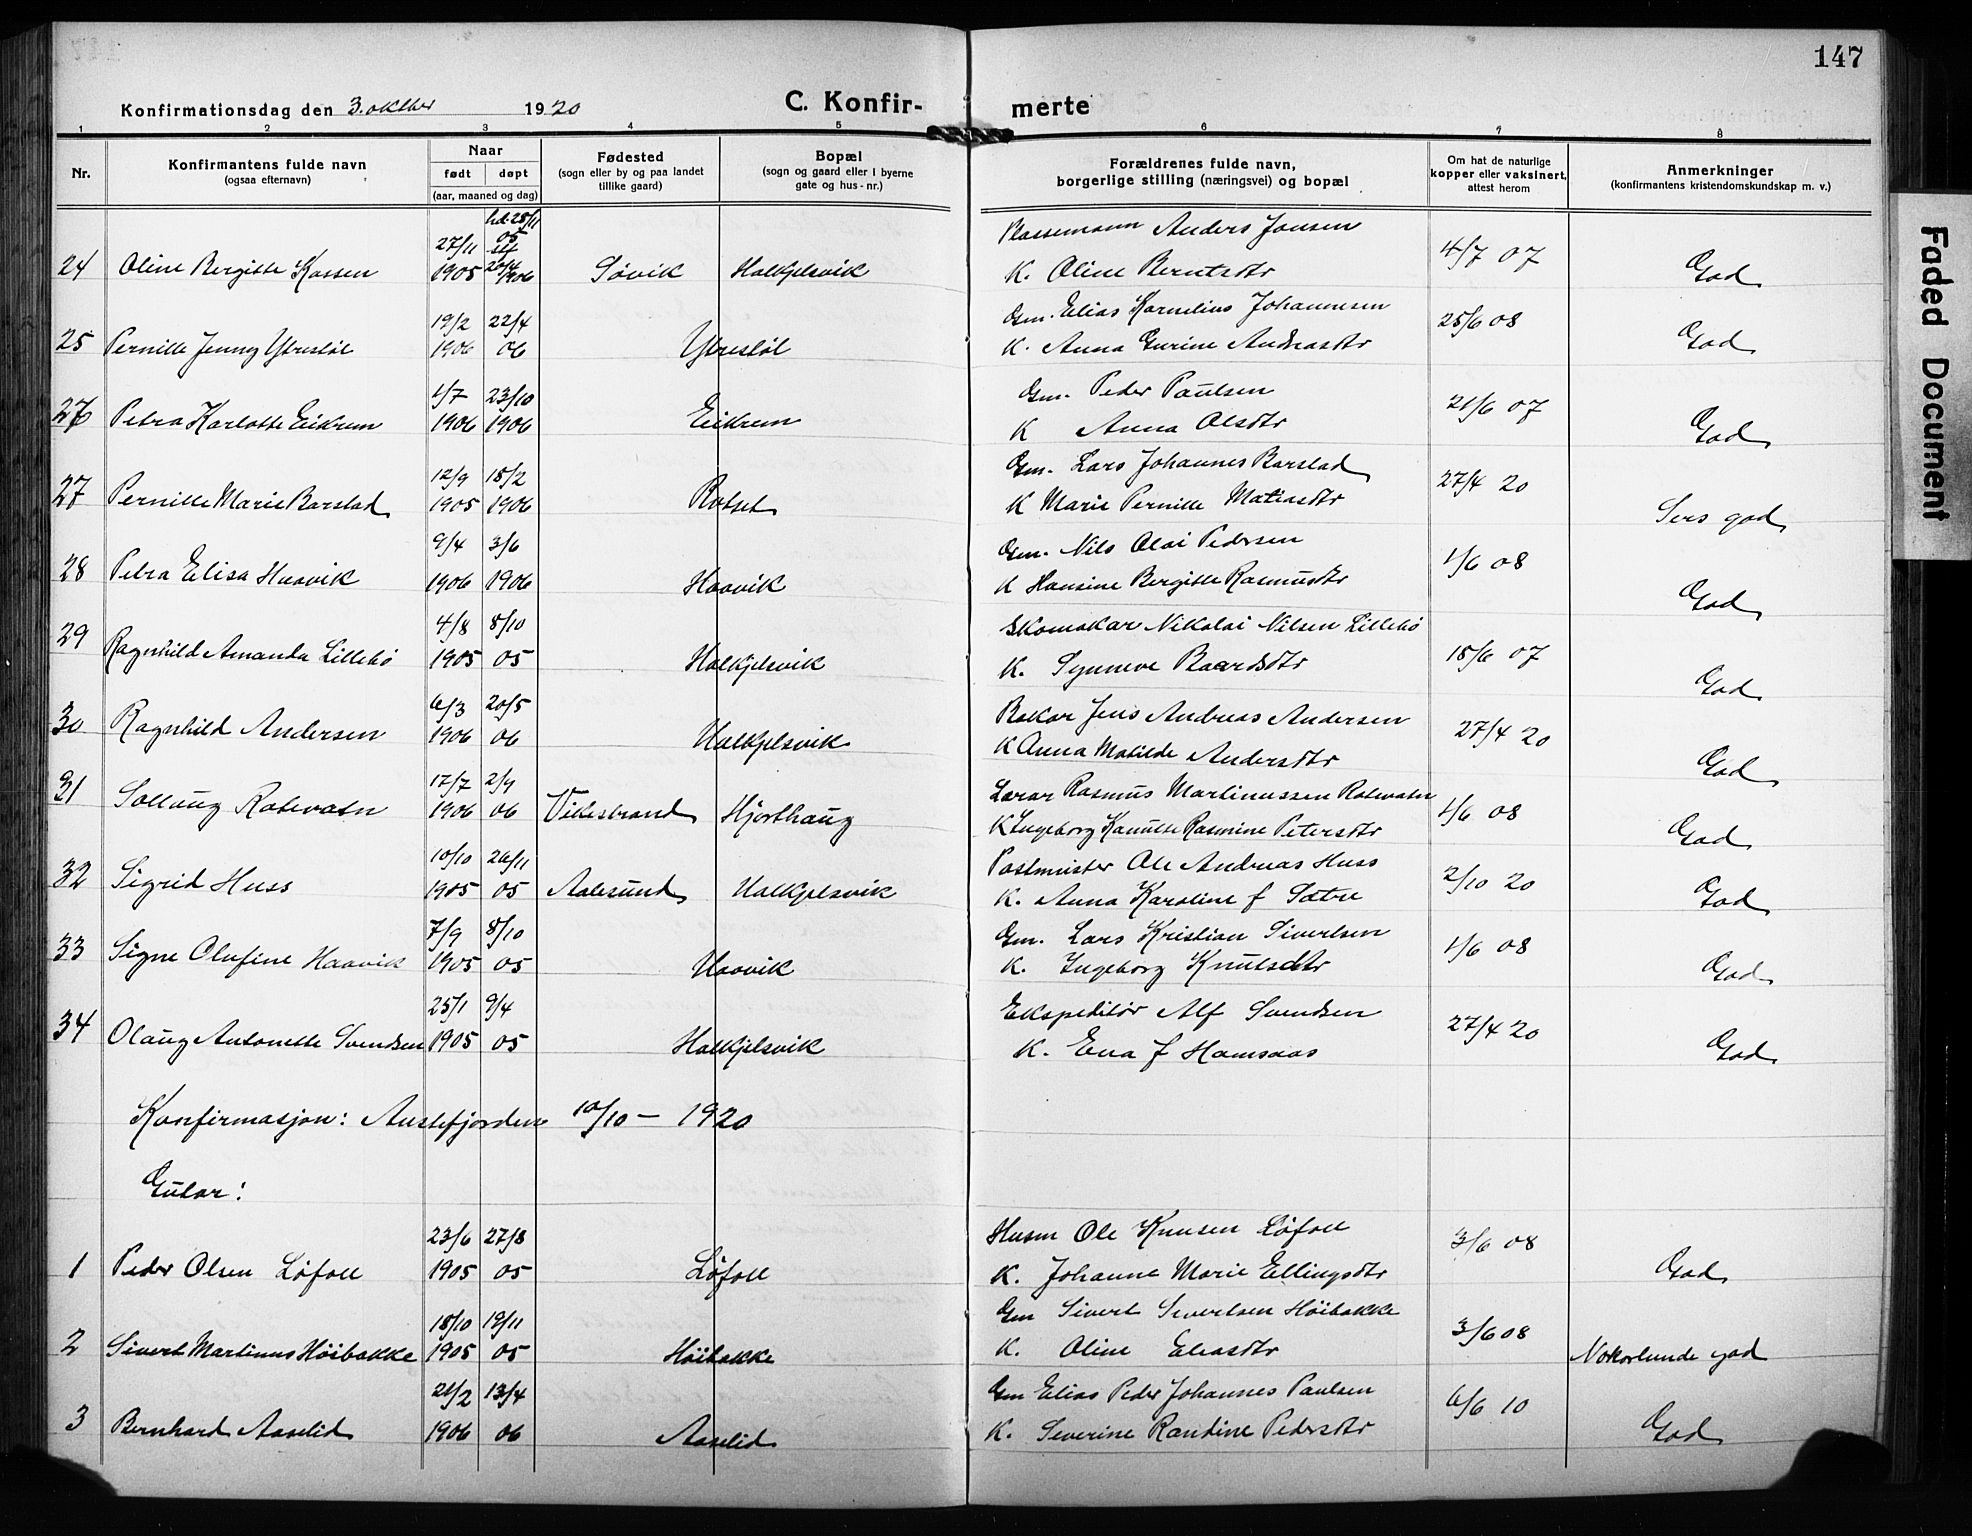 147
Konfirmationsdag den 3. oktber 1920
C. Konfir- merte
1 2 3 4 5 6 7 8
Nr.
Konfirmantens fulde navn
(ogsaa efternavn)
Naar
født døpt
(aar, maaned og dag)
Fødested
(sogn eller by og paa landet
tillike gaard)
Bopæl
(sogn og gaard eller i byerne
gate og hus-nr.)
Forældrenes fulde navn,
borgerlige stilling (næringsvei) og bopæl
Om hat de naturlige
kopper eller vaksinert,
attest herom
Anmerkninger
(konfirmantens kristendomskundskap m. v.)
hd. 28/11
27/11 05 Anders Jonsen
24 Oline Bergitte Kassen 1905 20/4 1906 Søvik Halkjelsvik K. Oline Berntsdtr 4/7 07 God
19/2 22/4 Gm. Elias Kornelius Johannesen
25 Pernille Jenny Ytrestøl 1906 06 Ytrestøl K. Anna Gurine Andreasdtr 25/6 08 God
1/7 23/10 Gm. Peder Paulsen
Petra Karlotte Eikrem 1906 1906 Eikrem K Anna Olsdtr 21/6 07 God
12/9 18/2 Gm. Lars Johannes Barstad
27 Pernille Marie Barstad 1905 1906 Rotset K Marie Pernille Matiasdtr 27/4 20 Sers god
9/4 3/6 Gm. Nils Olai Pedersen
28 Petra Elisa Haavik 1906 1906 Haavik K Hansine Bergitte Rasmusdtr 1/6 08 God
4/8 8/10 Skomakar Nikolai Nilsen Lillebø
29 Ragnhild Amanda Lillebø 1905 05 Halkjelsvik K. Synneve Baardsdtr 18/6 07 God
6/3 20/5 Bakar Jens Andreas Andersen
30 Ragnhild Andersen 1906 06 Halkjelsvik K Anna Matilde Andersdtr 27/4 20 God
17/7 2/9 Lærar Rasmus Martinussen Rotevatn
31 Sollaug Rotevatn 1906 06 Vikestrand Hjorthaug K Ingeborg Kanutte Rasmine Petersdtr 1/6 08 God
10/10 26/11 Postmester Ole Andreas Huss
32 Sigrid Huss 1905 05 Aalesund Halkjelsvik K. Anna Karoline f Sætre 2/10 20 God
7/9 8/10 Gm. Lars Kristian Sivertsen
33 Signe Olufine Haavik 1905 05 Haavik K. Ingeborg Knutsdtr 1/6 08 God
25/1 9/4 Ekspeditør Alf Svendsen
34 Olaug Antonette Svendsen 1905 05 Halkjelsvik K. Ena f Hamsaas 27/4 20 God
Konfirmasjon: Austefjorden 10/10 - 1920
Gutar:
23/6 27/8 Husm Ole Knusen Løfoll
1 Peder Olsen Løfoll 1905 05 Løfoll K. Johanne Marie Ellingsdtr 3/6 08 God
18/10 19/11 Gm Sivert Sivertsen Höibakke
2 Sivert Martinus Höibakke 1905 05 Höibakke K. Oline Eliasdtr 3/6 08 Nokorlunde god
21/2 13/4 Gm Elias Peder Johannes Paulsen
3 Bernhard Aaselid 1906 06 Aaselid K. Severine Randine Pedersdtr 6/6 10 God
Faded Document